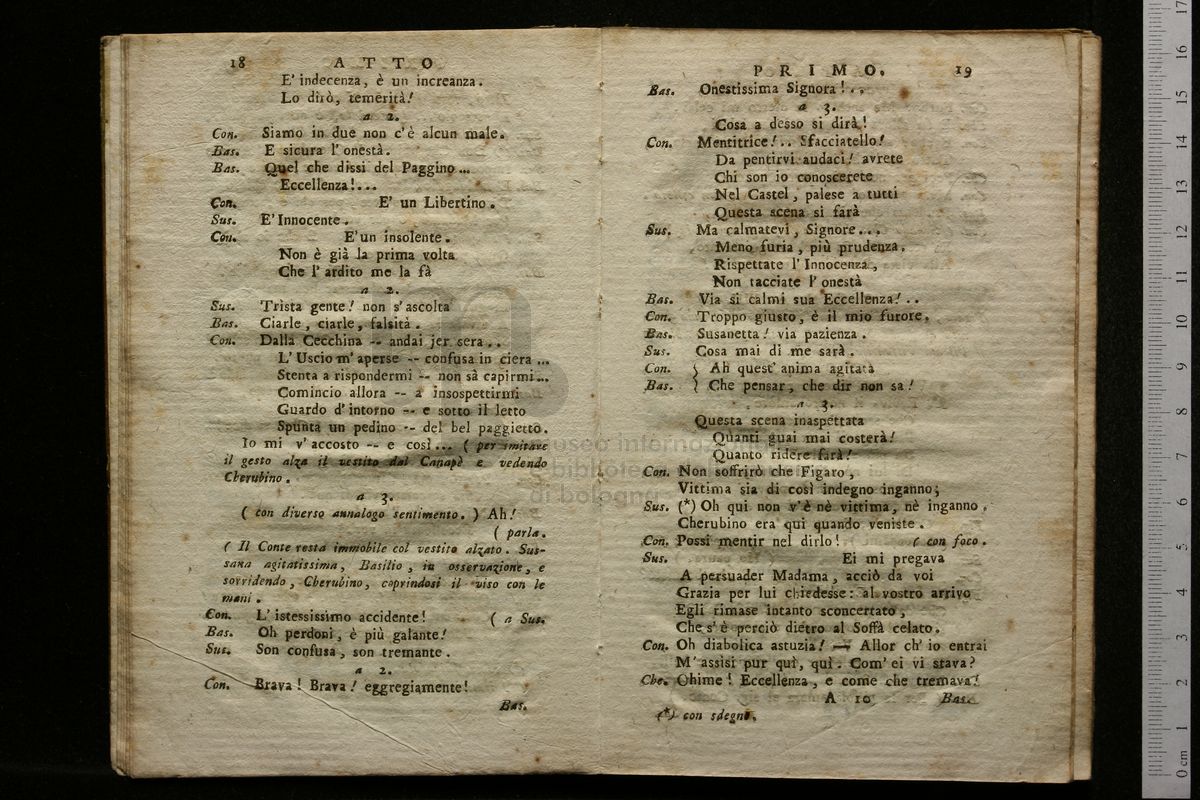 18 ATTO
E' indecenza, è un increanza.
Lo dirò, temerità!
a 2.
Con. Siamo in due non c'è alcun male.
Bas. E sicura l'onestà.
Bas. Quel che dissi del Paggino ...
Eccellenza!...
Con. E' un Libertino.
Sus. E' Innocente.
Con. E'un insolente.
Non è già la prima volta
Che l'ardito me la fà
a 2.
Sus. Trista gente! non s'ascolta
Bas. Ciarle, ciarle, falsità.
Con. Dalla Cecchina -- andai jer sera..
L'Uscio m'aperse -- confusa in ciera ...
Stenta a rispondermi -- non sà capirmi...
Comincio allora -- a insospettirmi
Guardo d'intorno -- e sotto il letto
Spunta un pedino -- del bel paggietto.
Io mi v'accosto -- e così... ( per imitare
il gesto alza il vestito dal Canapè e vedendo
Cherubino.
a 3.
( con diverso annalogo sentimento. ) Ah!
( parla.
( Il Conte resta immobile col vestito alzato. Sus-
sana agitatissima, Basilio, in osservazione, e
sorridendo, Cherubino, coprindosi il viso con le
mani.
Con. L'istessissimo accidente! ( a Sus.
Bas. Oh perdoni, è più galante!
Sus. Son confusa, son tremante.
a 2.
Con. Brava! Brava! eggregiamente!
Bas.
PRIMO. 19
Bas. Onestissima Signora!..
a 3.
Cosa a desso si dirà!
Con. Mentitrice!.. Sfacciatello!
Da pentirvi audaci! avrete
Chi son io conoscerete
Nel Castel, palese a tutti
Questa scena si farà
Sus. Ma calmatevi, Signore...
Meno furia, più prudenza,
Rispettate l'Innocenza,
Non tacciate l'onestà
Bas. Via si calmi sua Eccellenza!..
Con. Troppo giusto, è il mio furore.
Bas. Susanetta! via pazienza.
Sus. Cosa mai di me sarà.
Con. } Ah quest' anima agitatà
Bas. { Che pensar, che dir non sa!
a 3.
Questa scena inaspettata
Quànti guai mai costerà!
Quanto ridere farà!
Con. Non soffrirò che Figaro,
Vittima sia di così indegno inganno;
Sus. (*) Oh qui non v'è nè vittima, nè inganno.
Cherubino era qui quando veniste.
Con. Possi mentir nel dirlo! ( con foco.
Sus. Ei mi pregava
A persuader Madama, acciò da voi
Grazia per lui chiedesse: al vostro arrivo
Egli rimase intanto sconcertato,
Che s'è perciò dietro al Soffà celato.
Con. Oh diabolica astuzia! — Allor ch'io entrai
M'assisi pur quì, quì. Com'ei vi stava?
Che. Ohime! Eccellenza, e come che tremava!
A 10 Bas.
(*) con sdegno.
museo internazionale
biblioteca
di bologna
0 cm 1 2 3 4 5 6 7 8 9 10 11 12 13 14 15 16 17